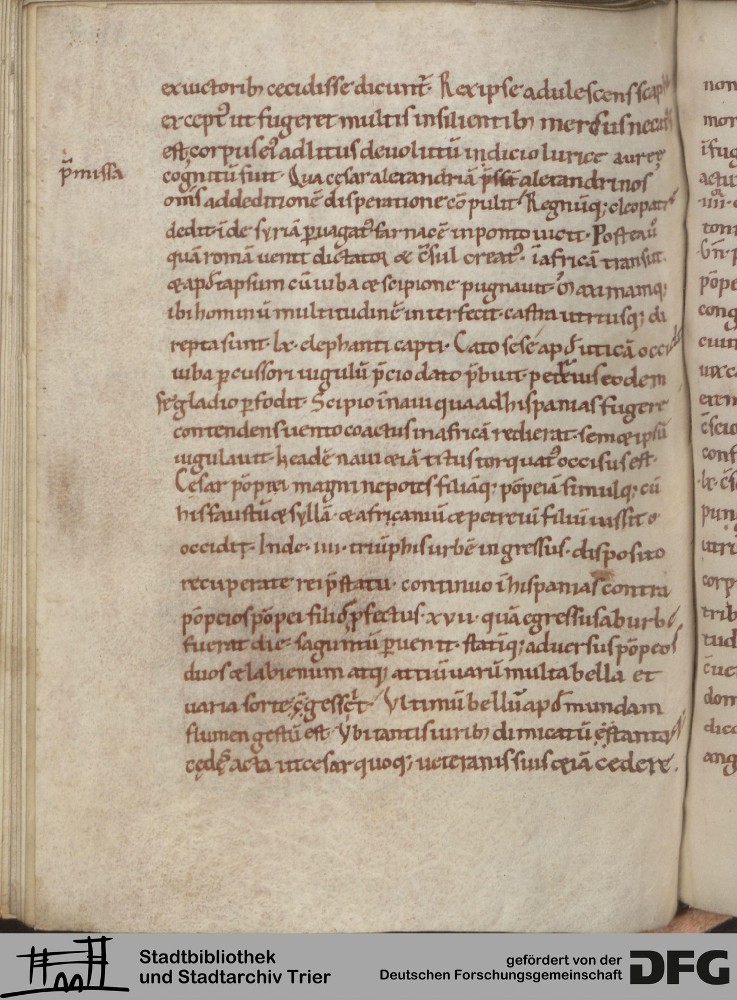 ex uictorib; cecidisse dicunt͛. Rex ipse adulescens scap
except᷒ ut fugeret multis insilientib; mersus necat᷒
est. corpus ei᷒ ad litus deuolutū indicio lurice auree
p̄missa
cognitū fuit. Qua cesar alexandriā p̄ssa alexandrinos
om̄s ad deditionē disperatione cōpulit. Regnūq; cleopatre
dedit. īde syriā puagat᷒ farnacē in ponto uicit. Postea ū
quā romā uenit dictator & c̄sul creat᷒. ī africā transiit.
& apđ tapsum cū iuba & scipione pugnauit. Maximamq;
ibi hominū multitudinē interfecit. castra utriusq; di
repta sunt. lx. elephanti capti. Cato sese apđ uticā occi
iuba pcussori iugulū p̄cio dato p̄buit. petreius eodem
se gladio pfodit. Scipio ī naui qua ad hispanias fugere
contendens uento coactus in africā redierat. sem& ipsū
iugulauit. In eadē naui &iā titus torquat᷒ occisus est.
Cesar pōpei magni nepotes filiāq; pōpeiā simulq; cū
his faustū & syllā. & africaniū & petreiū filiū iussit
occidit. Inde .iiii. triūphis urbē ingressus. disposito
recuperate rei p̄ statu. continuo ī hispanias contra
pōpeios pōpei filios pfectus. xvii. quā egressus ab urbe
fuerat die. saguntū puenit. statīq; aduersus pōpeos
duos & labienum atq; attiū uarū multa bella et
uaria sorte gessit. Vltimū bellū apđ mundam
flumen gestū est. Vbi tantis uirib; dimicatū & tanta
cedes acta ut cesar quoq; ueteranis suis &iā cedere.
non
mor
ī fug
actu
.iiii.
pōpe
cong
conf
corp
trib
tud
dom
ang
Stadtbibliothek
und Stadtarchiv Trier
gefördert von der
Deutschen Forschungsgemeinschaft
DFG